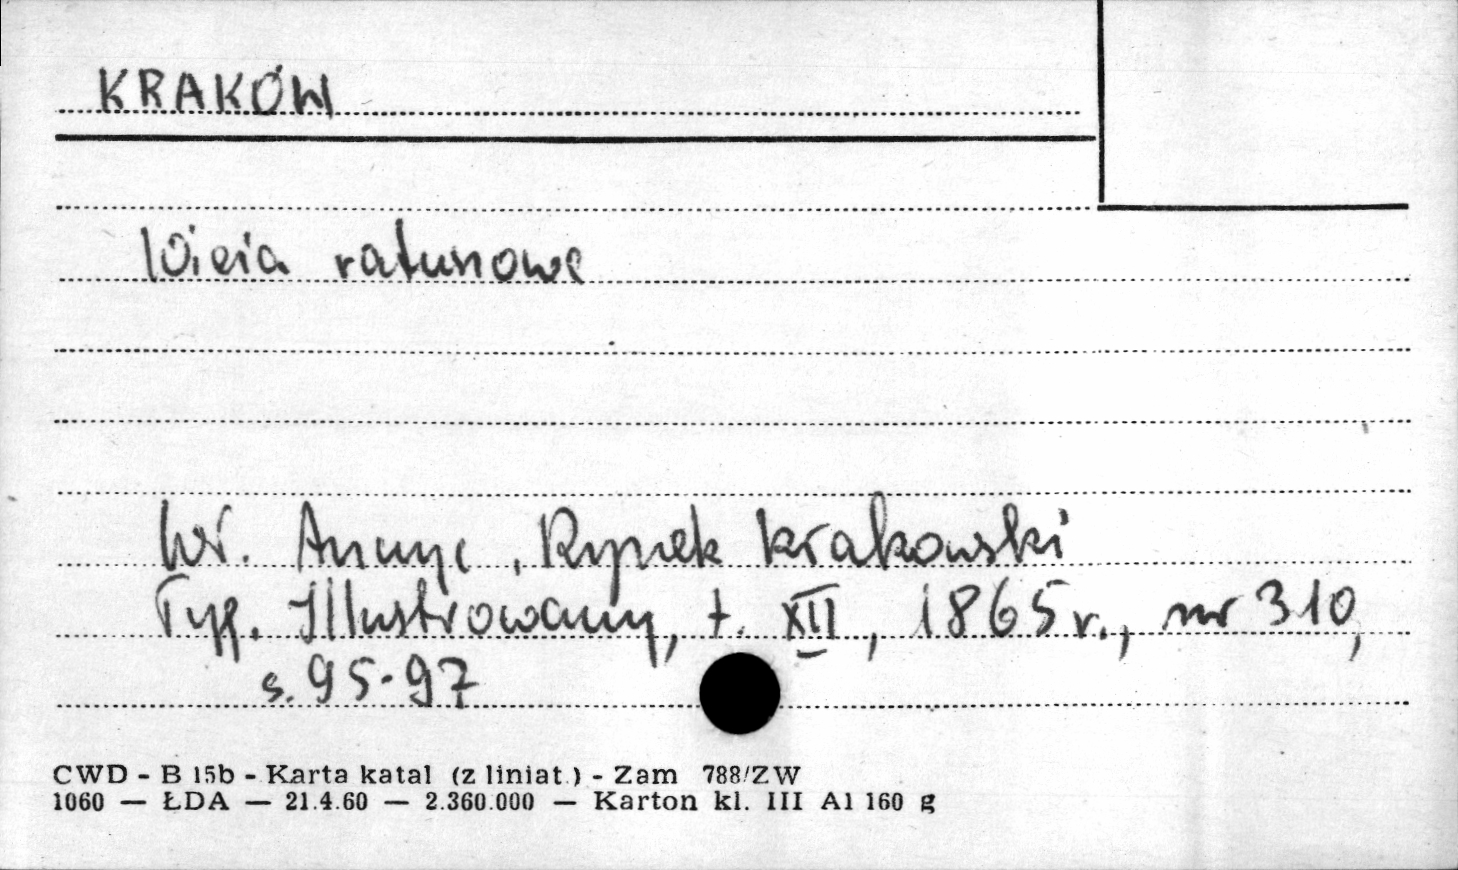 KRAKÓW
Wieża ratuszowa
Wł. Anczyc, Rynek krakowski
Tyg. Illustrowany, t. XII, 1865 r., nr 310,
s. 95-97
CWD - B 15b - Karta katal (z liniat.) - Zam 788/ZW
1060 — ŁDA — 21.4.60 — 2.360.000 — Karton kl. III A1 160 g